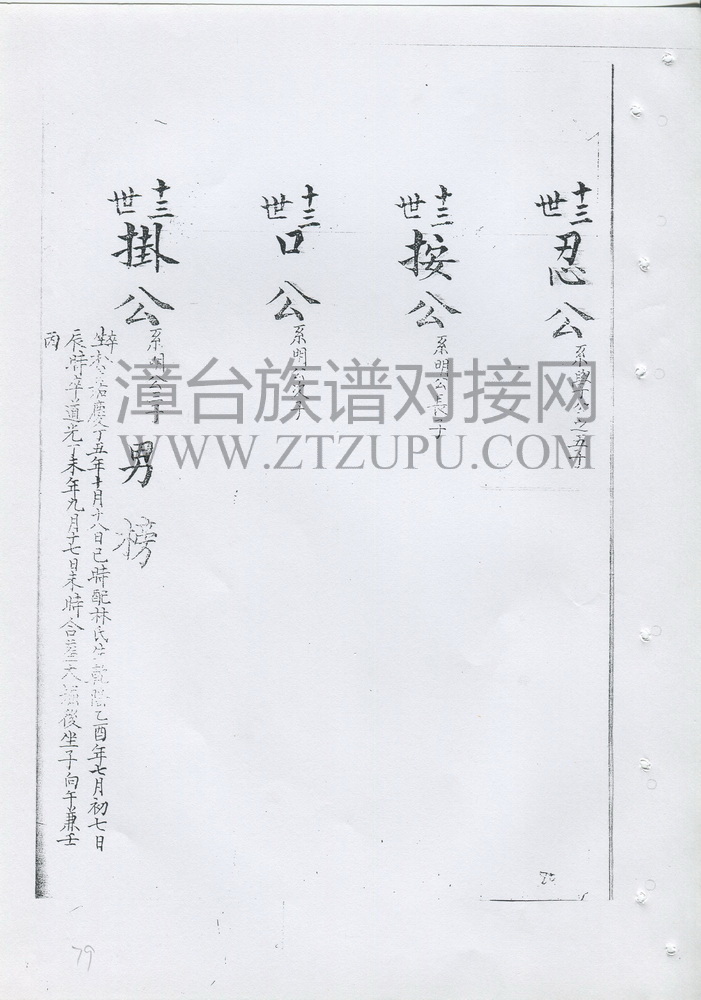 十三世忍公 系學公之五子
十三世按公 系明公長子
十三世口公 系明公次子
十三世掛公 系明公三子 男 榜
嘉慶丁丑年十月十八日巳時配林氏生乾隆乙酉年七月初七日
辰時卒道光丁未年九月十七日未時合葬大 後坐子向午兼壬
丙
漳台族谱对接网
WWW.ZTZUPU.COM
79